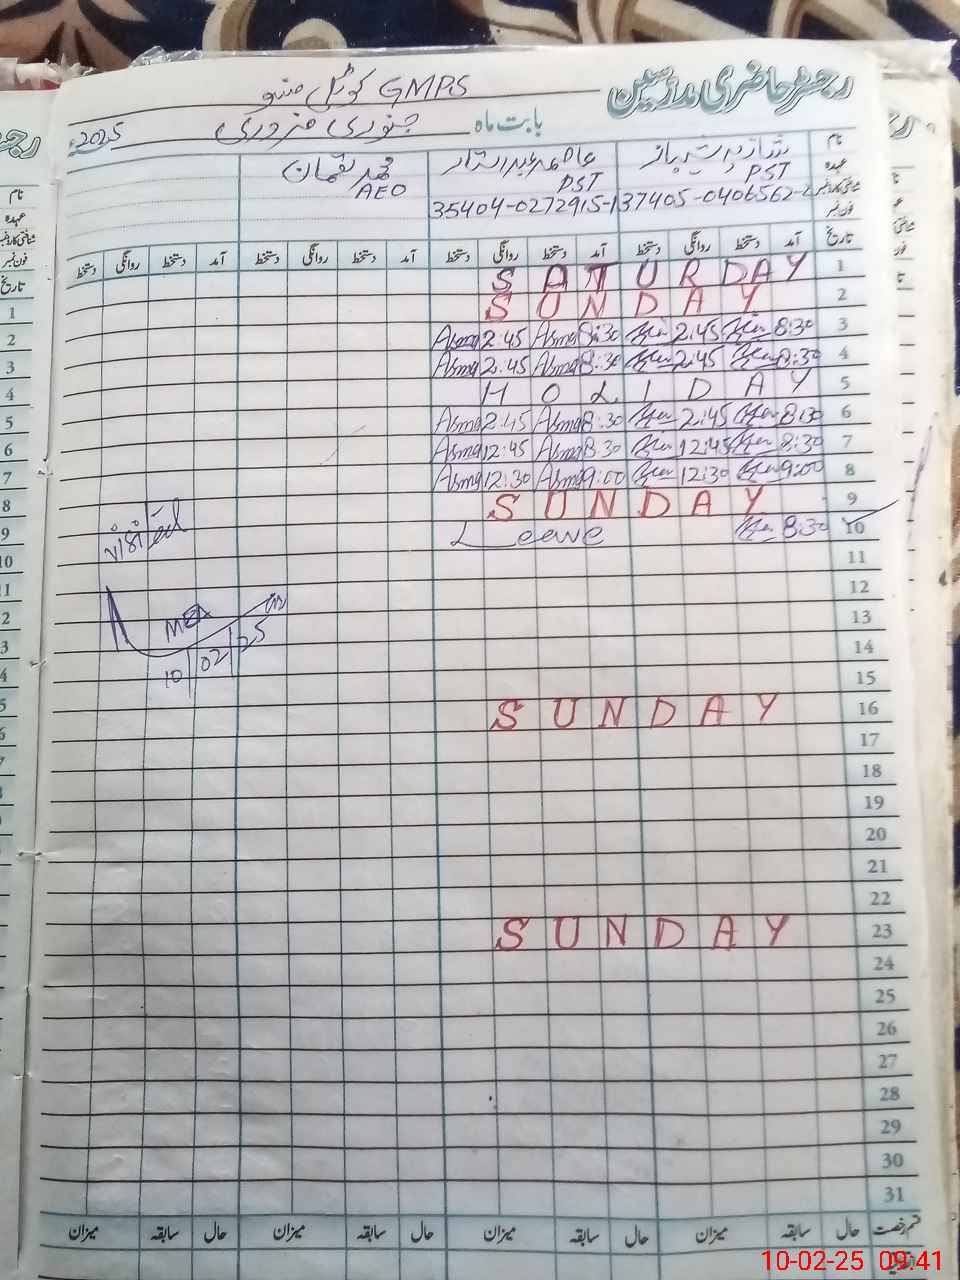 رجسٹر حاضری مدرسین
GMPS کوٹلی منو
بابت ماہ جنوری فروری 2025ء
نام شازیہ شہباز عاصمہ عبدالستار محمد نعمان
عہدہ PST PST AEO
شناختی کارڈ نمبر 35404-0272915-1
فون نمبر
تاریخ آمد دستخط روانگی دستخط آمد دستخط روانگی دستخط آمد دستخط روانگی دستخط آمد دستخط روانگی دستخط
1 SATURDAY
2 SUNDAY
3 8:30 2:45 8:30 Asma 2:45 Asma
4 8:30 2:45 8:30 Asma 2:45 Asma
5 HOLIDAY
6 8:30 2:45 8:30 Asma 2:45 Asma
7 8:30 12:45 8:30 Asma 12:45 Asma
8 9:00 12:30 9:00 Asma 12:30 Asma
9 SUNDAY
10 8:30 Leave
visited
10/02/25
11
12
13
14
15
16 SUNDAY
17
18
19
20
21
22
23 SUNDAY
24
25
26
27
28
29
30
31
قسم رخصت حال سابقہ میزان حال سابقہ میزان حال سابقہ میزان حال سابقہ میزان
10-02-25 09:41